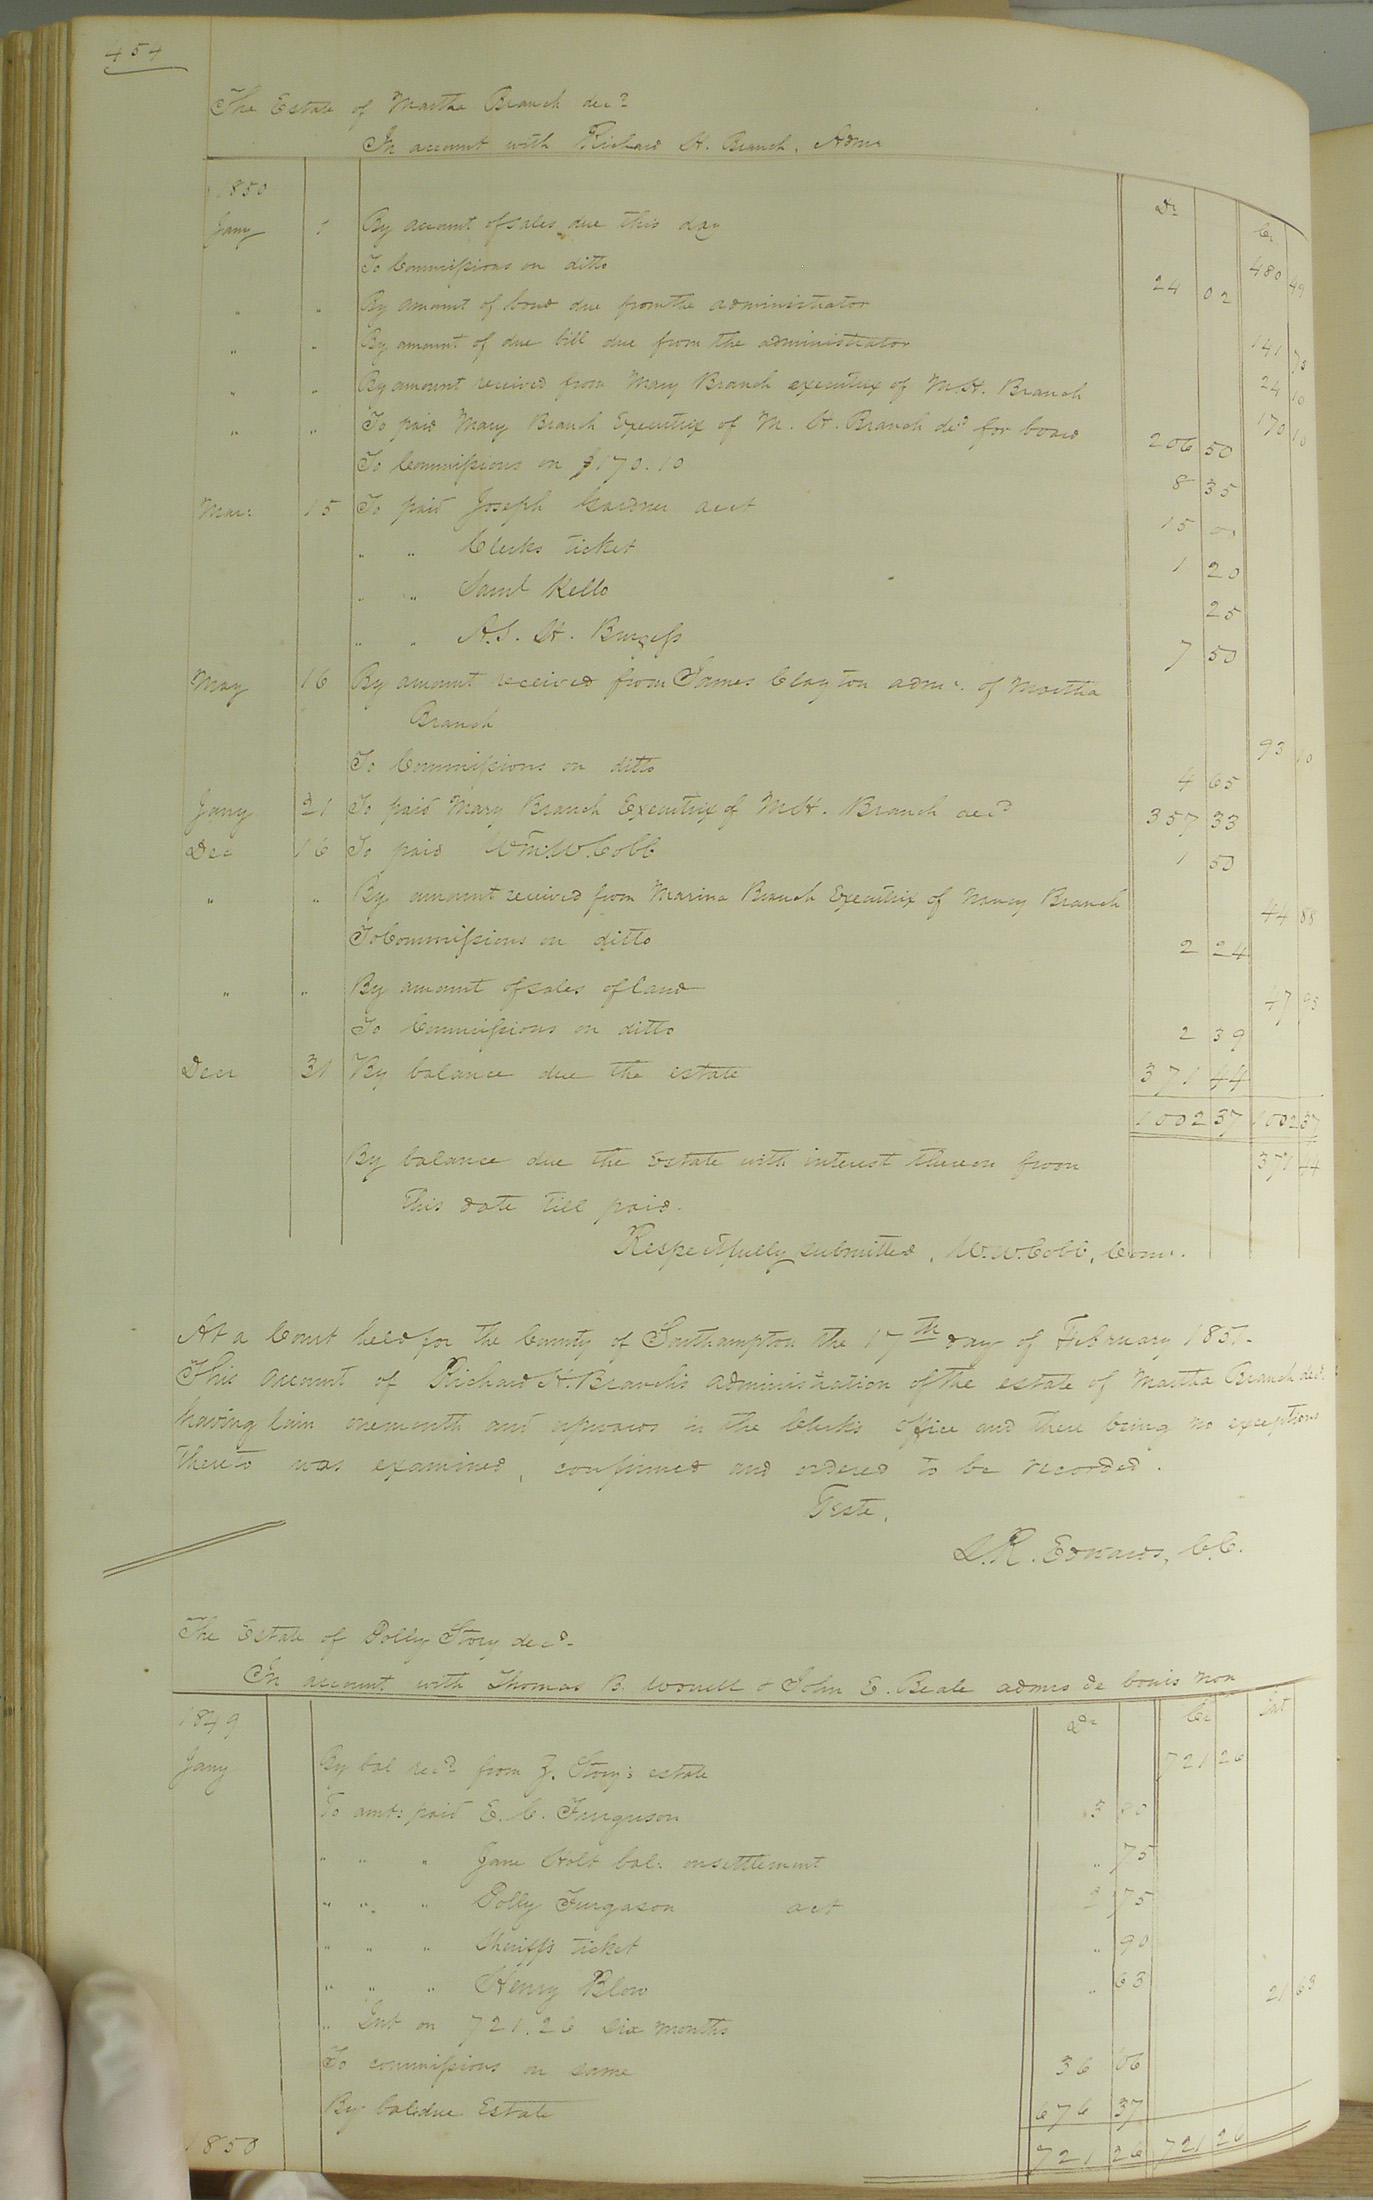 454
The Estate of Martha Branch decd
In account with Richard H. Branch, Admr
1850 Dr Cr
Jany 1 By amount of sales due this day 480 49
To Commissions on ditto 24 02
" " By amount of bond due from the administrator 141 75
" " By amount of due bill due from the administrator 24 10
" " By amount received from Mary Branch executrix of M.H. Branch 170 10
" " To paid Mary Branch Executrix of M. H. Branch decd for board 206 50
To Commissions on $170.10 8 35
Mar: 15 To paid Joseph Gardner acct 15 00
" " Clerks ticket 1 20
" " Saml Kello 25
" " A.S. H. Burgess 7 50
May 16 By amount received from James Clayton admr. of Martha
Branch 93 10
To Commissions on ditto 4 65
Jany 21 To paid Mary Branch Executrix of M.H. Branch decd 357 33
Dec 16 To paid Wm. W. Cobb 1 50
" " By amount received from Marina Branch Executrix of Nancy Branch 44 88
To Commissions on ditto 2 24
" " By amount of sales of land 47 95
To Commissions on ditto 2 39
Decr 31 By balance due the estate 371 44
1002 37 1002 37
By balance due the Estate with interest thereon from 371 44
this date till paid.
Respectfully submitted, W.W. Cobb, Comr.
At a Court held for the County of Southampton the 17th day of February 1851.
This account of Richard H. Branch's administration of the estate of Martha Branch decd.
having lain one month and upwards in the Clerk's office and there being no exceptions
thereto was examined, confirmed and ordered to be recorded.
Teste,
L.R. Edwards, C.C.
The Estate of Polly Story decd.
In account with Thomas B. Worrell & John E. Beale admrs de bonis non
1849 Dr Cr Int
Jany By bal recd from J. Story's estate 721 26
To amt: paid E. C. Furguson 3 80
" " " Jane Holt bal: on settlement " 75
" " " Polly Furgason act 2 75
" " " Sheriffs ticket " 90
" " " Henry Blow " 63
" Int on 721.26 six months 21 63
To commissions on same 36 06
By bal due Estate 676 37
721 26 721 26
1850